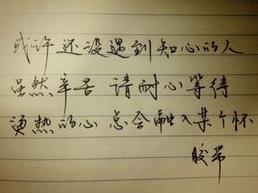 或许还没遇到知心的人
虽然辛苦 请耐心等待
烫热的心 总会融入某个怀
胶带